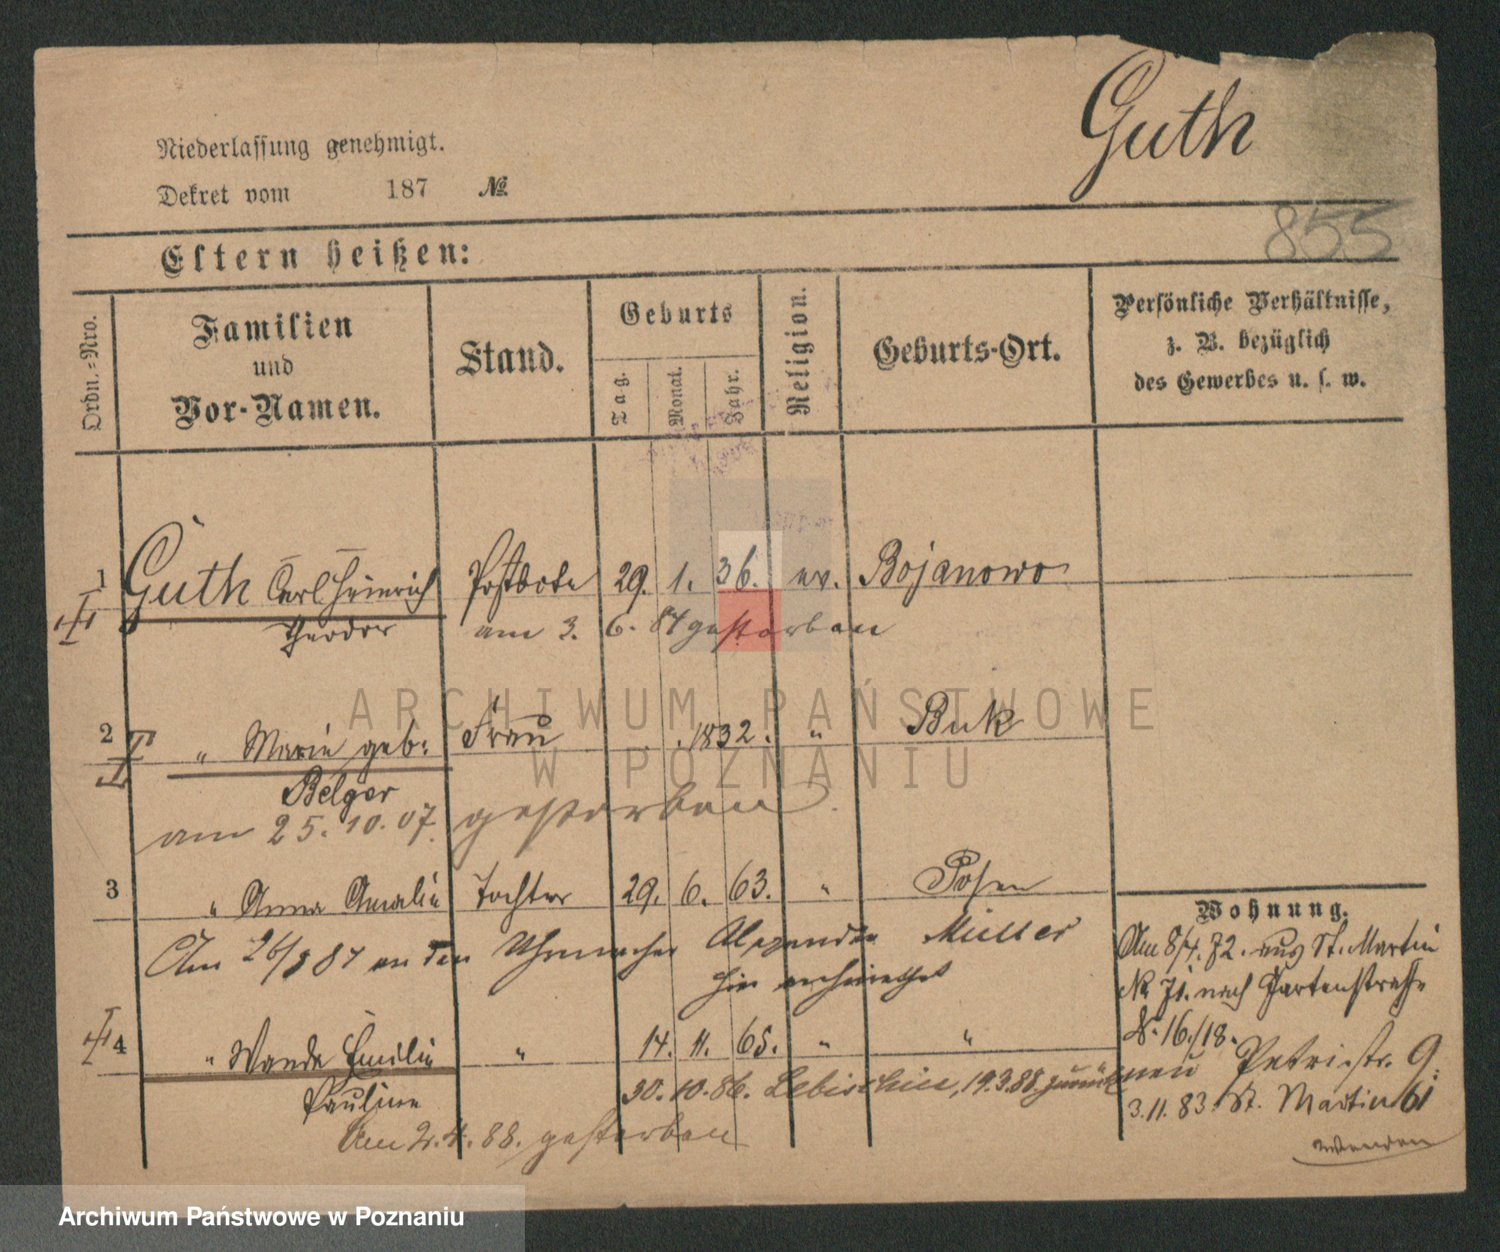 Guth
Niederlassung genehmigt.
Dekret vom 187 №
855
Eltern heißen:
Ordn.-Nro.
Familien
und
Vor-Namen.
Stand.
Geburts
Tag.
Monat.
Jahr.
Religion.
Geburts-Ort.
Persönliche Verhältnisse,
z. B. bezüglich
des Gewerbes u. s. w.
1 Guth Carl Heinrich Postbote 29. 1. 36. ev. Bojanowo
Theodor am 3. 6. 84 gestorben
2 " Marie geb: Frau 1832. " Buk
Belger
am 25.10.07. gestorben
3 " Anna Amalie Tochter 29. 6. 63. " Posen
Am 26/8 87 an den Uhrmacher Müller
hier verheirathet
4 " Wanda Emilie " 14. 11. 65. " "
Pauline
30.10.86. 19.3.88. zurück
Am 2.4.88. gestorben
Wohnung.
Am 8/4. 72. aus St. Martin
№ 71. nach Gartenstrasse
№ 16./18.
neu Petristr. 9.
3.11.83. St. Martin 61
wenden
ARCHIWUM PAŃSTWOWE
W POZNANIU
Archiwum Państwowe w Poznaniu